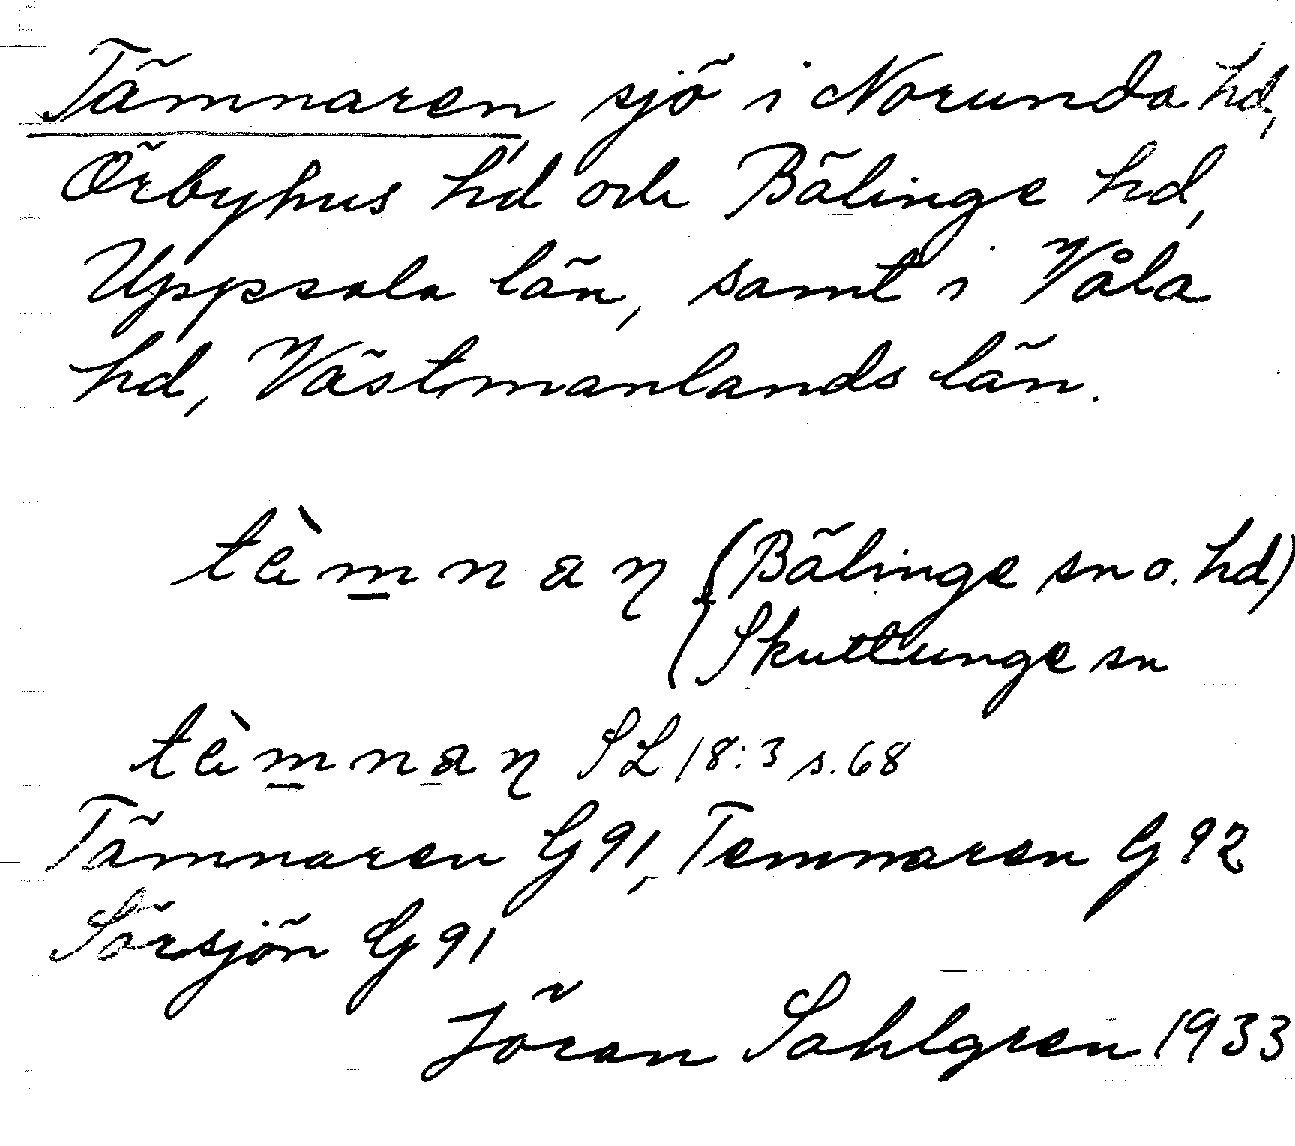 Tämnaren, sjö i Norunda hd,
Örbyhus hd och Bälinge hd,
Uppsala län, samt i Våla
hd, Västmanlands län.
tèm̲naŋ (Bälinge sn o. hd)
(Skuttunge sn
tèm̲na̲ŋ SL 18:3 s. 68
Tämnaren G 91, Temnaren G 92
Sörsjön G 91
Jöran Sahlgren 1933